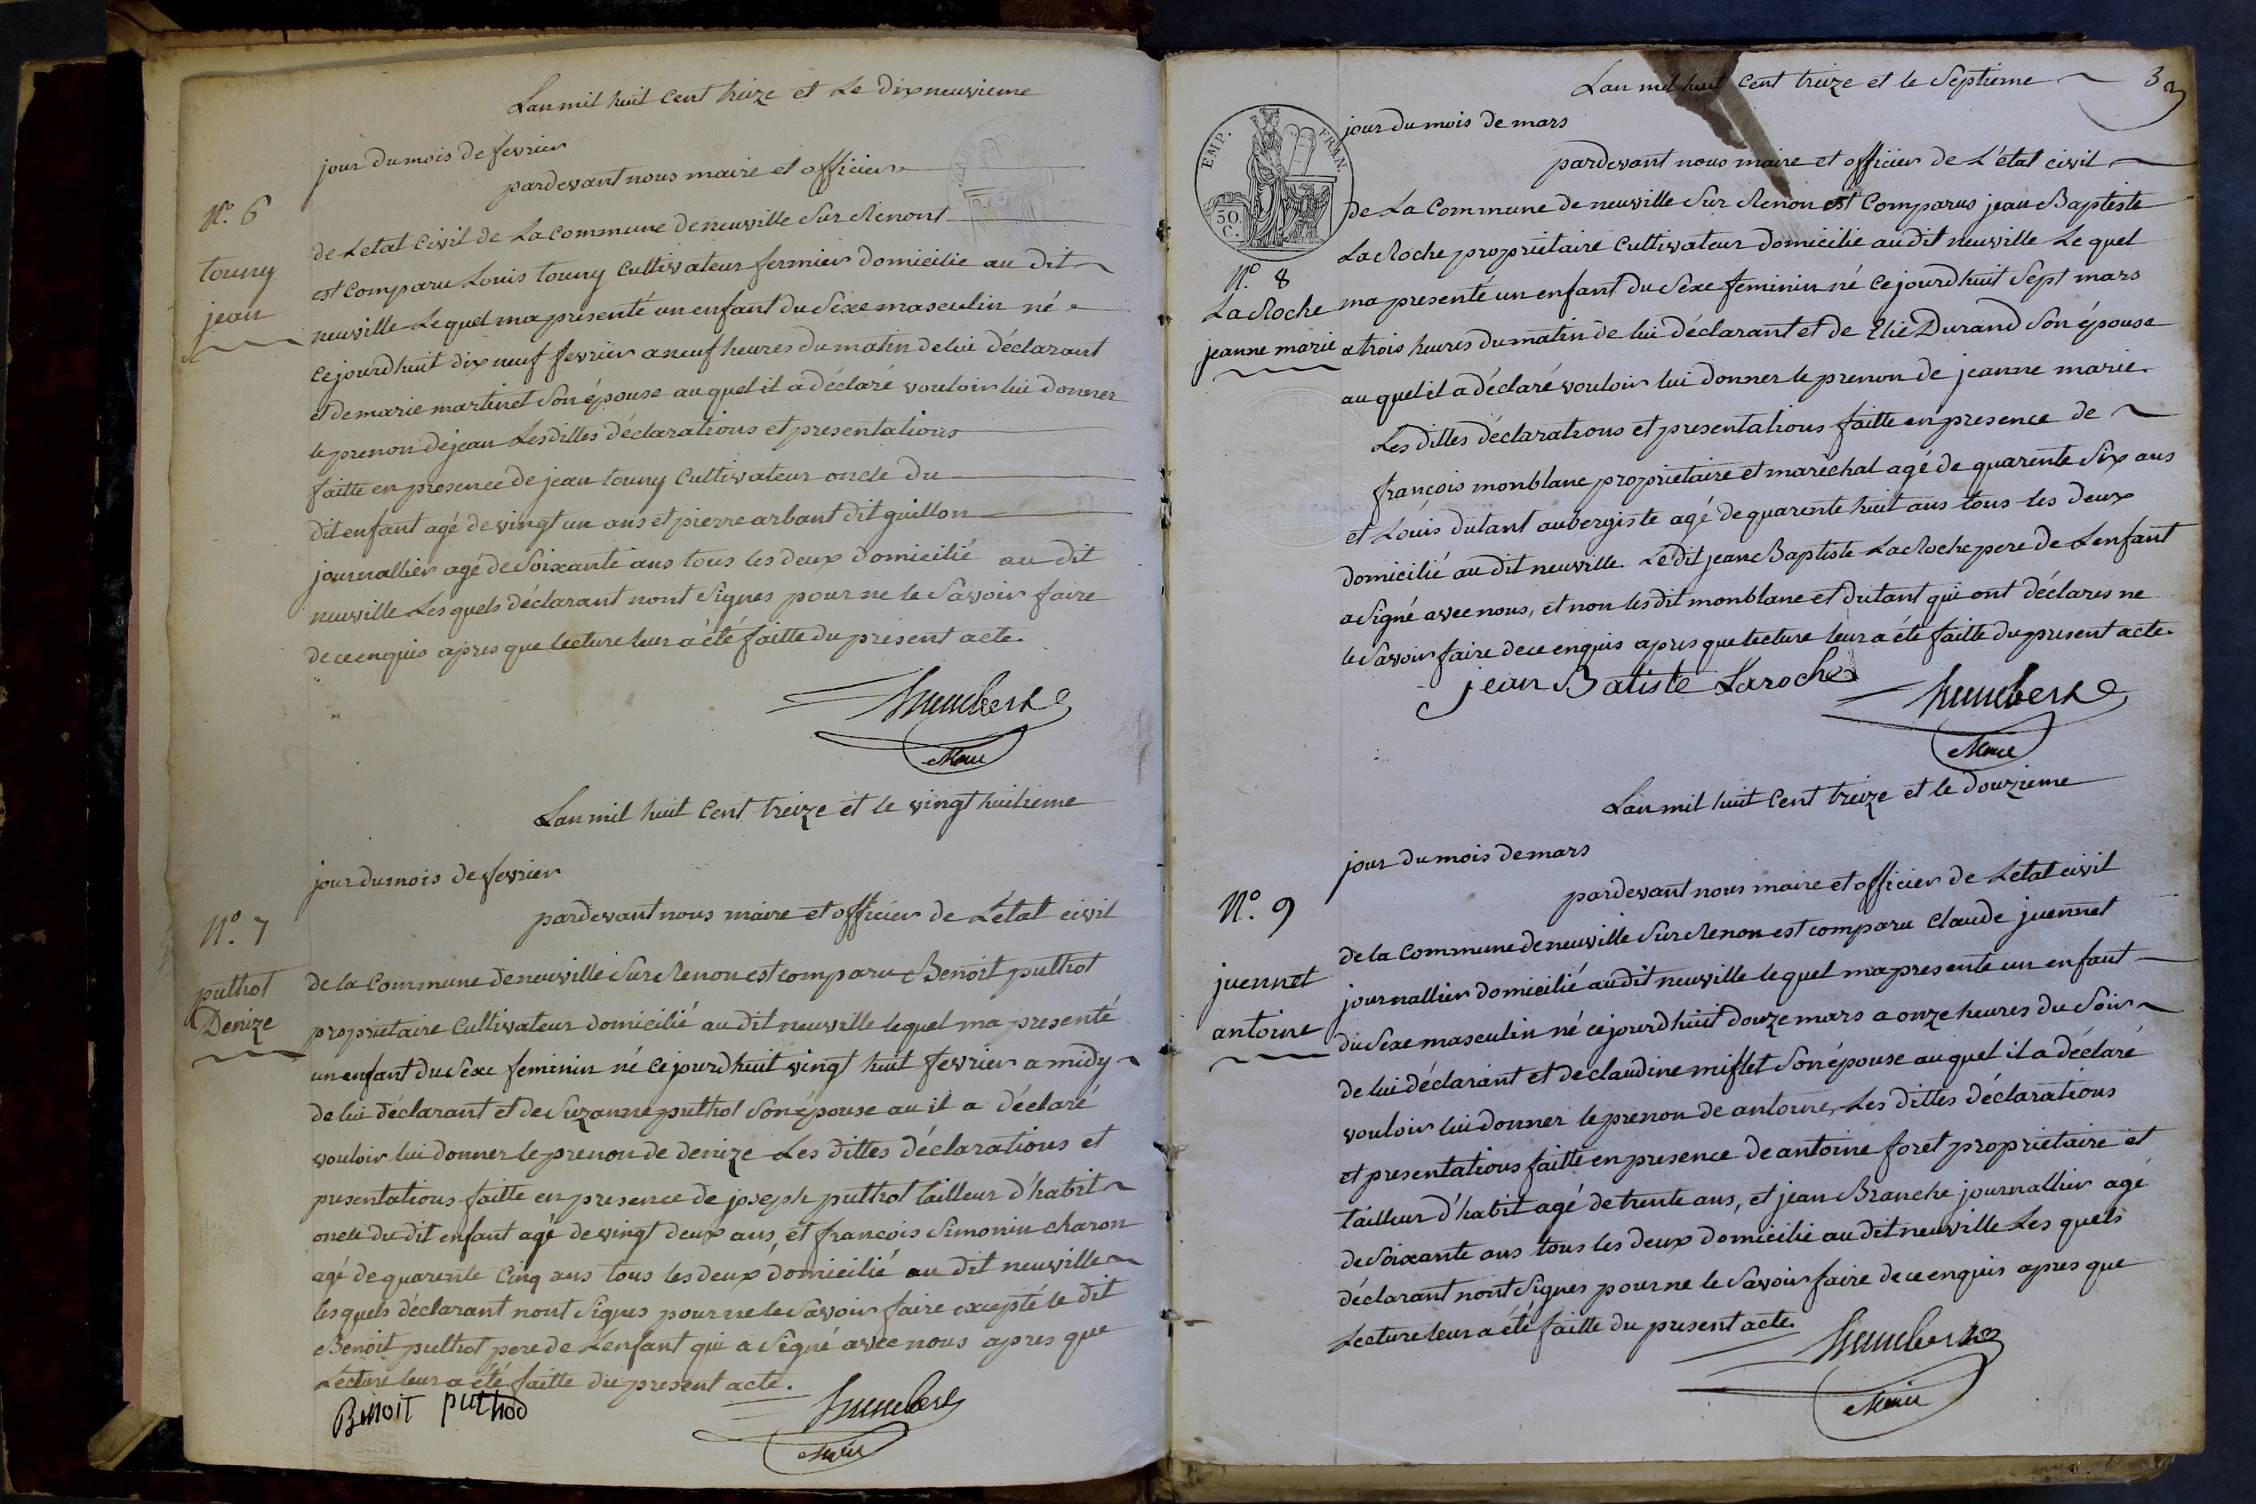 Lan mil huit Cent treize et Le Dix neuvieme
jour du mois de fevrier
pardevant nous maire et officier
N.o 6
de Letat Civil de La commune de neuville Sur Renont
touny
est comparu Louis touny Cultivateur fermier domicilie au dit
jean
neuville Lequel ma presenté un enfant du Sexe masculin né
Cejourdhuit dix neuf fevrier a neuf heures du matin de lui déclarant
et de marie martinet Son épouse au quel il a déclaré vouloir lui donner
le prenon de jean Lesdittes déclarations et presentations
faitte en presence de jean touny Cultivateur oncle du
dit enfant agé de vingt un ans et pierre arbant dit guillon
journallier agé de Soixante ans tous les deux domicilié au dit
neuville Les quels déclarant nont Signes pour ne le Savoir faire
de ce enquis apres que lecture leur a été faitte du present acte.
humbert
Maire
Lan mil huit Cent treize et le vingt huitieme
jour du mois de fevrier
pardevant nous maire et officier de L'état civil
N.o 7
de la Commune de neuville Sur Renon est comparu Benoit puthot
puthot
Denize
proprietaire Cultivateur domicilié au dit neuville lequel ma presenté
un enfant du Sexe feminin né Ce jourdhuit vingt huit fevrier a midy
de lui déclarant et de Suzanne puthot Son épouse au il a déclaré
vouloir lui donner le prenon de denize Les dittes déclarations et
presentations faitte en presence de joseph puthot tailleur d'habit
oncle du dit enfant agé de vingt deux ans, et francois Simonin charon
agé de quarente Cinq ans tous les deux domicilié au dit neuville
lesquels déclarant nont Signes pour ne le Savoir faire excepté le dit
Benoit puthot pere de Lenfant qui a Signé avec nous apres que
Lecture leur a été faitte du present acte.
Benoit puthod
humbert
Maire
3
Lan mil huit Cent treize et le Septieme
jour du mois de mars
EMP. FRAN.
50. C.
pardevant nous maire et officier de L'état civil
de La Commune de neuville Sur Renon est Comparus jean Baptiste
LaRoche proprietaire Cultivateur domicilié au dit neuville Le quel
N.o 8
LaRoche
ma presenté un enfant du Sexe feminin né Cejourdhuit Sept mars
jeanne marie
a trois heures du matin de lui déclarant et de Elie Durand Son épouse
au quel il a déclaré vouloir lui donner le prenon de jeanne marie.
Les dittes déclarations et presentations faitte en presence de
françois monblanc proprietaire et marechal agé de quarente Six ans
et Louis dutant aubergiste agé de quarente huit ans tous les deux
domicilié au dit neuville. Le dit jean Baptiste LaRoche pere de Lenfant
a Signé avec nous, et non les dit monblanc et dutant qui ont déclares ne
le Savoir faire de ce enquis apres que lecture leur a été faitte du present acte.
jean Batiste Laroche
humbert
Maire
Lan mil huit Cent treize et le douzieme
jour du mois de mars
pardevant nous maire et officier de Letat civil
N.o 9
de la Commune de neuville Sur Renon est comparu Claude juennet
juennet
journallier domicilié au dit neuville lequel ma presente un enfant
antoine
du Sexe masculin né cejourdhuit douze mars a onze heures du Soir
de lui déclarant et de claudine miflet Son épouse au quel il a déclaré
vouloir lui donner le prenon de antoine, Les dittes déclarations
et presentations faitte en presence de antoine foret proprietaire et
tailleur d'habit agé de trente ans, et jean Branche journallier agé
de Soixante ans tous les deux domicilié au dit neuville Les quels
déclarant nont Signes pour ne le Savoir faire de ce enquis apres que
Lecture leur a été faitte du present acte.
humbert
Maire